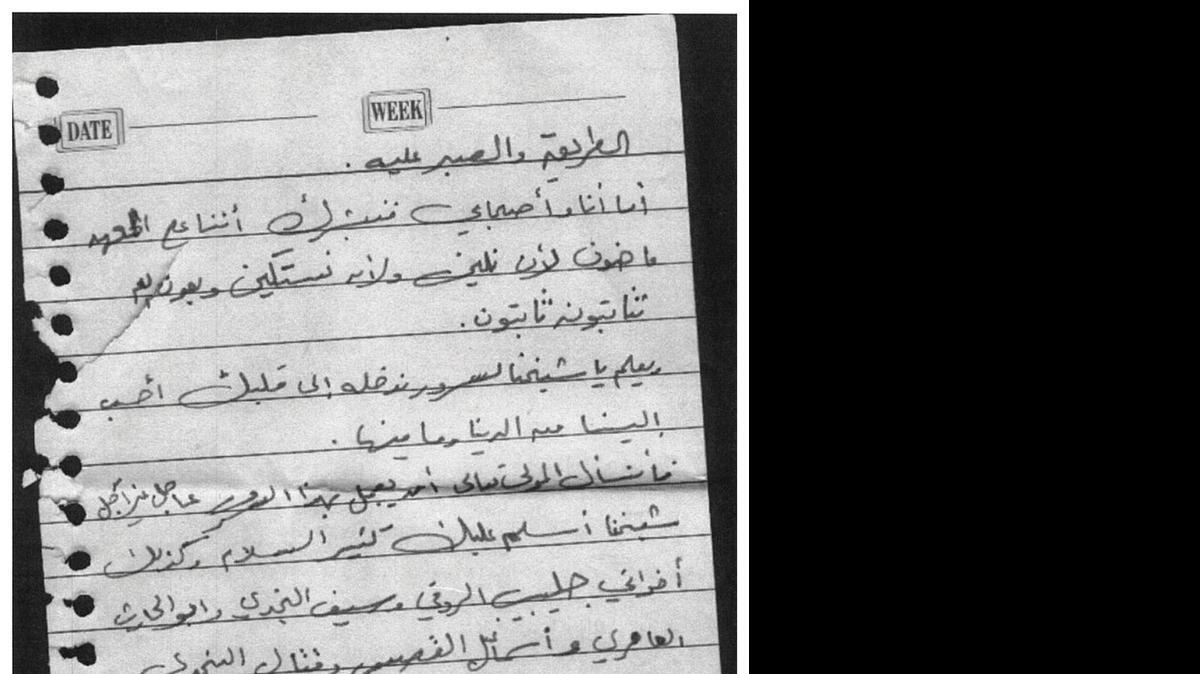 DATE WEEK
الطريق والصبر عليه .
أما أنا وأصحابي فنبشرك أننا على العهد
ماضون لأن نلين ولأن نستكين وبعون
ثابتون ثابتون .
ويعلم يا شيخنا لسرور ندخله إلى قلبك أحب
إلينا من الدنيا وما فيها .
فأنسأل المولى تعالى أن يعجل بهذا عاجل غير آجل
شيخنا أسلم عليك كثير السلام وكذلك
أخواني جليبيب الروقي وسيف النجدي وأبو الحارث
العامري و وقتال النجدي